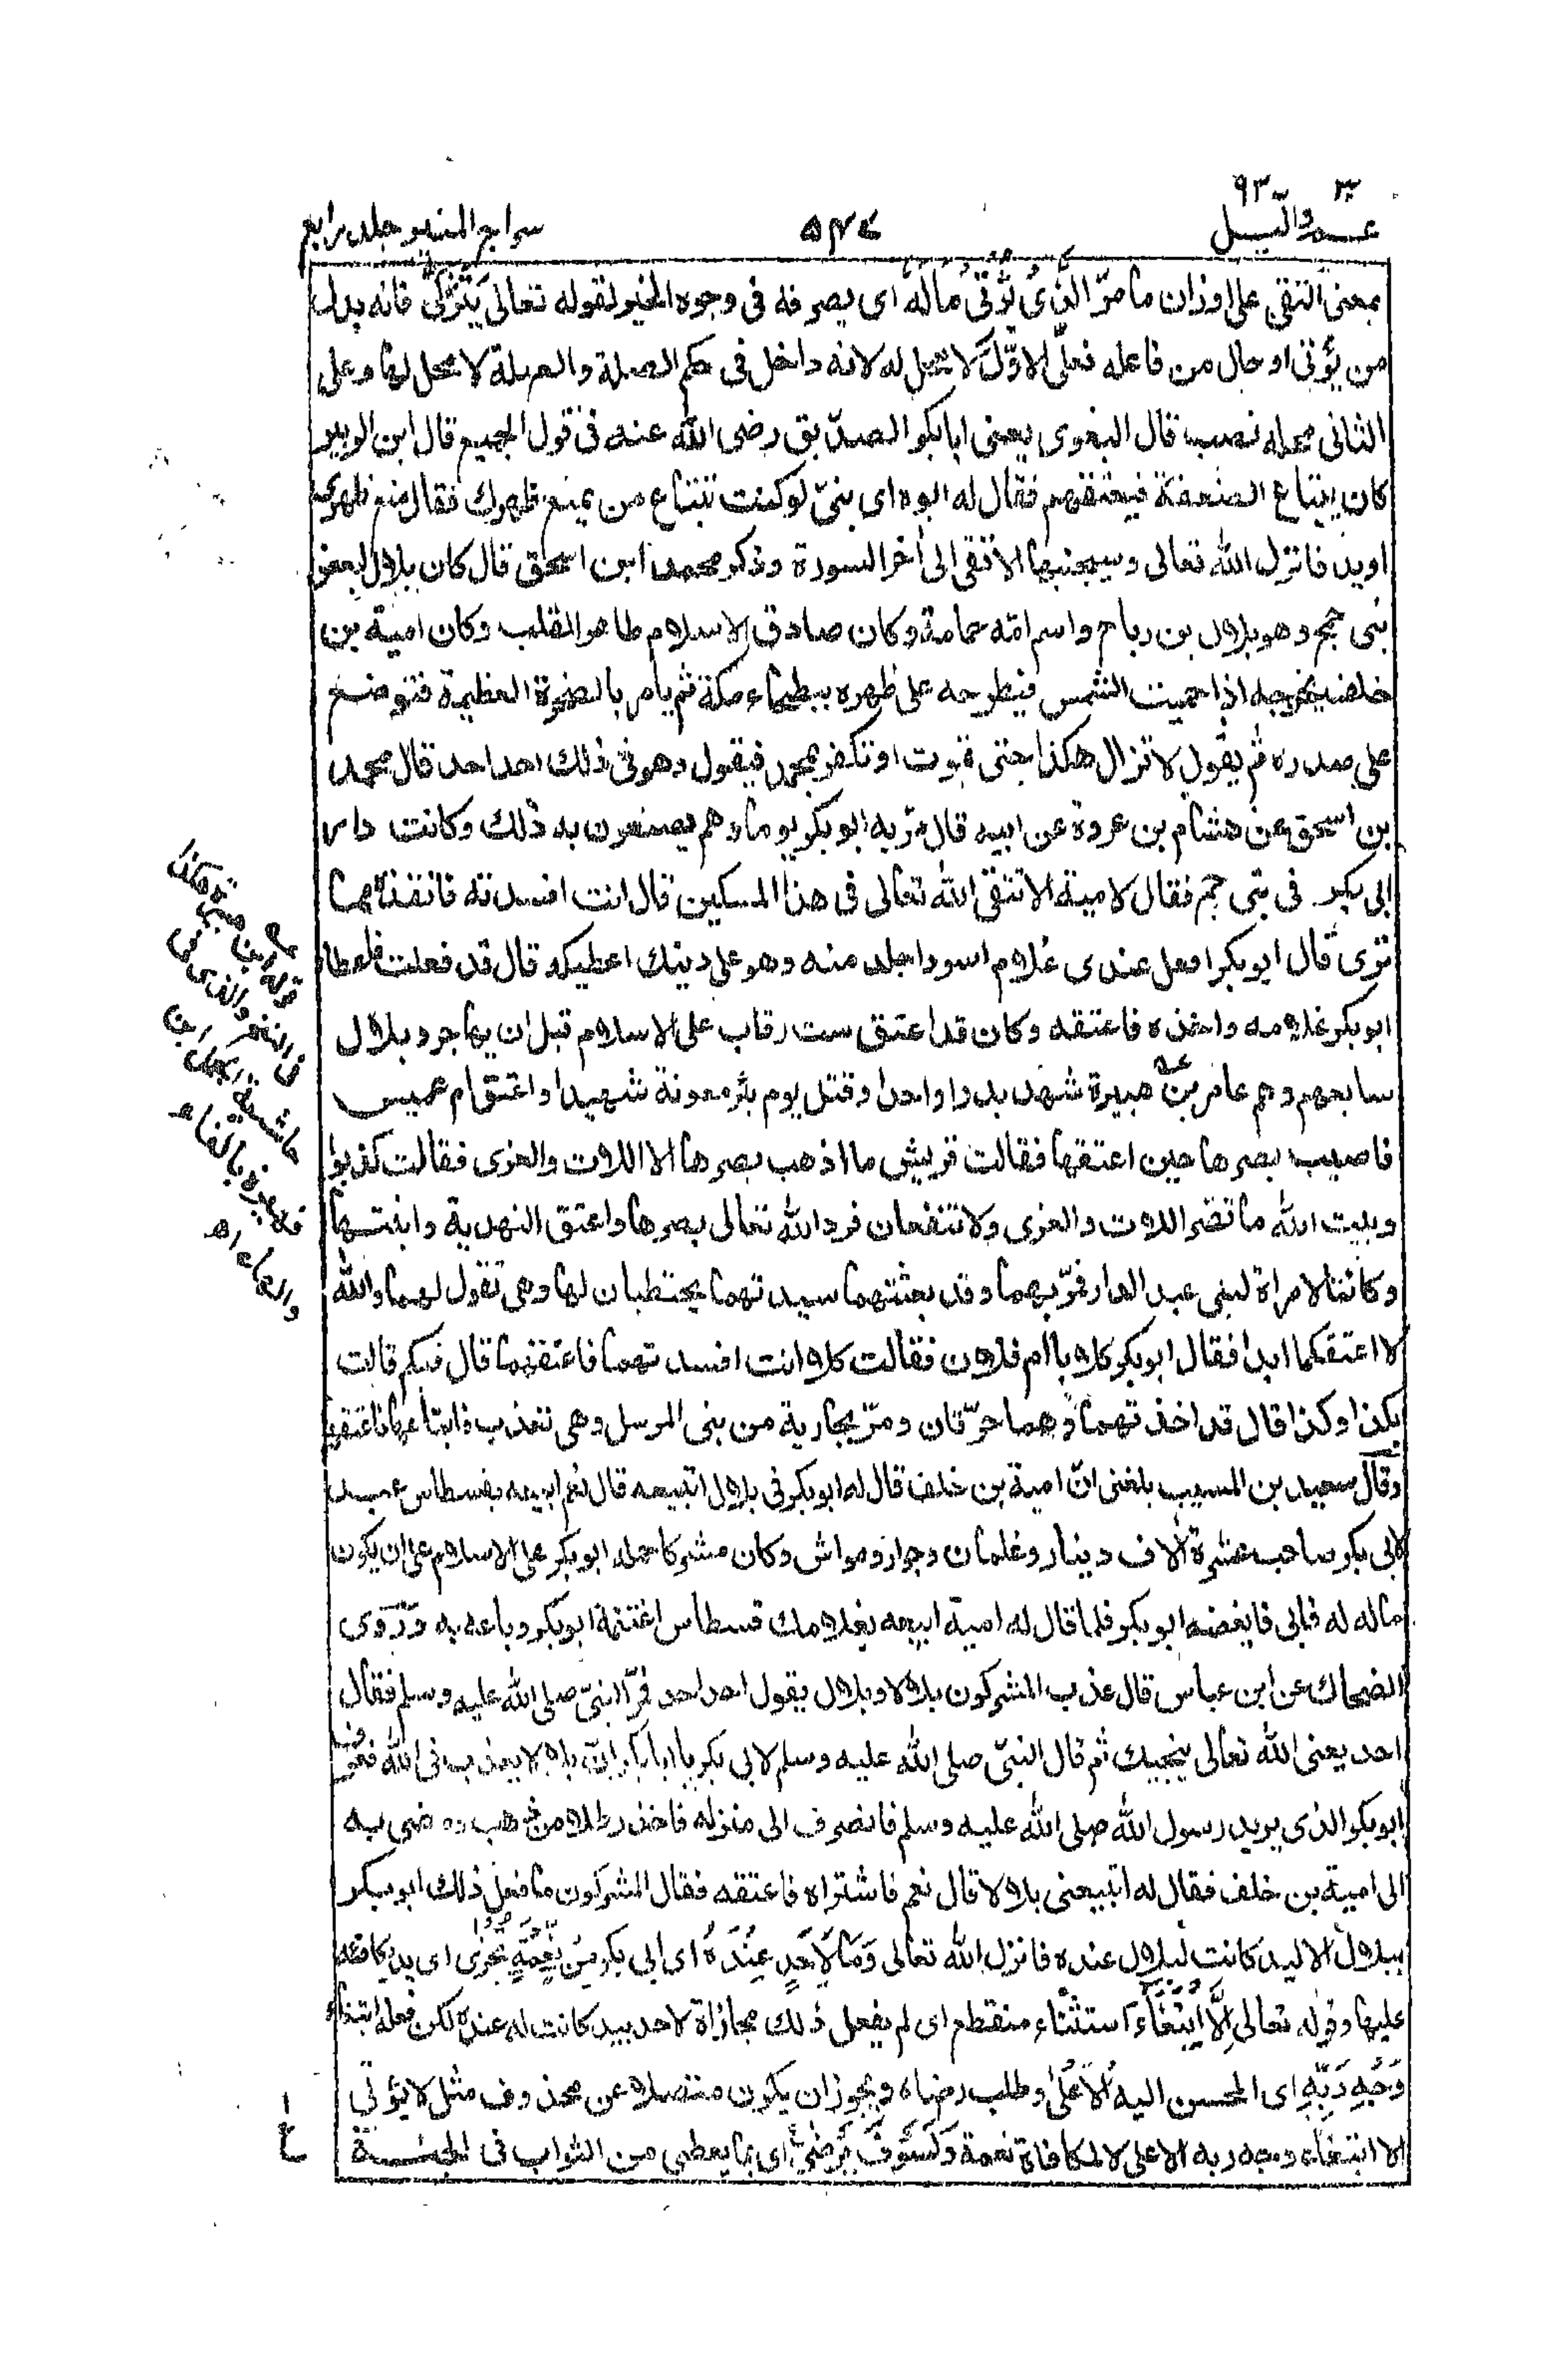 عمّ والليل ٩٣
سراج المنير جلد رابع
بمعنى التقى على اوزان ما مرّ الَّذِىْ يُؤْتِىْ مَالَهٗ اى يصرفه فى وجوه الخير لقوله تعالى يَتَزَكّٰى فانه بدل
من يؤتى او حال من فاعله فعلى الاوّل لا محل له لانه داخل فى حكم الصلة والصلة لا محل لها وعلى
الثانى محله نصب قال البغوى يعنى ابا بكر الصدّيق رضى الله عنه فى قول الجميع قال ابن الزبير
كان يبتاع الضعفة فيعتقهم فقال له ابوه اى بنىّ لو كنت تبتاع من يمنع ظهرك فقال منع ظهرى
اريد فانزل الله تعالى وسيجنبها الاتقى الى اٰخر السورة وذكر محمد ابن اسحٰق قال كان بلال لبعض
بنى جمح وهو بلال بن رباح واسم امّه حمامة وكان صادق الاسلام طاهر القلب وكان امية بن
خلف يخرجه اذا حميت الشمس فيطرحه على ظهره ببطحاء مكة ثم يامر بالصخرة العظيمة فتوضع
على صدره ثم يقول لا تزال هكذا حتى تموت او تكفر بمحمد فيقول وهو فى ذلك احد احد قال محمد
بن اسحٰق عن هشام بن عروة عن ابيه قال مرّ به ابو بكر يوما وهم يصنعون به ذلك وكانت دار
ابى بكر فى بنى جمح فقال لامية الا تتقى الله تعالى فى هذا المسكين قال انت افسدته فانقذه مما
ترى قال ابو بكر افعل عندى غلام اسود اجلد منه وهو على دينك اعطيكه قال قد فعلت فاعطاه
ابو بكر غلامه واخذه فاعتقه وكان قد اعتق ست رقاب على الاسلام قبل ان يهاجر وبلال
سابعهم وهم عامر بن هبيرة شهد بدرا واحدا وقتل يوم بئر معونة شهيدا واعتق ام عميس
فاصيب بصرها حين اعتقها فقالت قريش ما اذهب بصرها الا اللات والعزى فقالت كذبوا
وبيت الله ما تضر اللات والعزى ولا تنفعان فرد الله تعالى بصرها واعتق النهدية وابنتها
وكانتا لامراة لبنى عبد الدار فمرّ بهما وقد بعثتهما سيدتهما يحتطبان لها وهى تقول لهما والله
لا اعتقكما ابدا فقال ابو بكر كلا يا ام فلان فقالت كلا انت افسدتهما فاعتقهما قال فبكم قالت
بكذا وكذا قال قد اخذتهما وهما حرّتان ومرّ بجارية من بنى المرسل وهى تعذب فابتاعها فاعتقها
وقال سعيد بن المسيب بلغنى انّ امية بن خلف قال له ابو بكر فى بلال اتبيعه قال نعم ابيعه بفسطاس عبد
لابى بكر صاحب عشرة اٰلاف دينار وغلمان وجوار ومواش وكان مشركا حمله ابو بكر على الاسلام على ان يكون
ماله له فابى فابغضه ابو بكر فلما قال له امية ابيعه بغلامك قسطاس اغتنمه ابو بكر وباعه به وروى
الضحاك عن ابن عباس قال عذب المشركون بلالا وبلال يقول احد احد فمرّ النبىّ صلى الله عليه وسلم فقال
احد يعنى الله تعالى ينجيك ثم قال النبىّ صلى الله عليه وسلم لابى بكر يا ابا بكر انّ بلالا يعذب فى الله فعرف
ابو بكر الذى يريد رسول الله صلى الله عليه وسلم فانصرف الى منزله فاخذ رطلا من ذهب ومضى به
الى امية بن خلف فقال له اتبيعنى بلالا قال نعم فاشتراه فاعتقه فقال المشركون ما فعل ذلك ابو بكر
ببلال الا ليد كانت لبلال عنده فانزل الله تعالى وَمَا لِاَحَدٍ عِنْدَهٗ اى ابى بكر مِنْ نِّعْمَةٍ تُجْزٰٓى اى يد يكافئه
عليها وقوله تعالى اِلَّا ابْتِغَآءَ استثناء منقطع اى لم يفعل ذلك مجازاة لاحد بيد كانت له عنده لكن فعله ابتغاء
وَجْهِ رَبِّهِ اى المحسن اليه الْاَعْلٰى وطلب رضاه ويجوز ان يكون متصلا عن محذوف مثل لا يؤتى
الا ابتغاء وجه ربه الاعلى لا لمكافاة نعمة وَلَسَوْفَ يَرْضٰى اى بما يعطى من الثواب فى الجنة